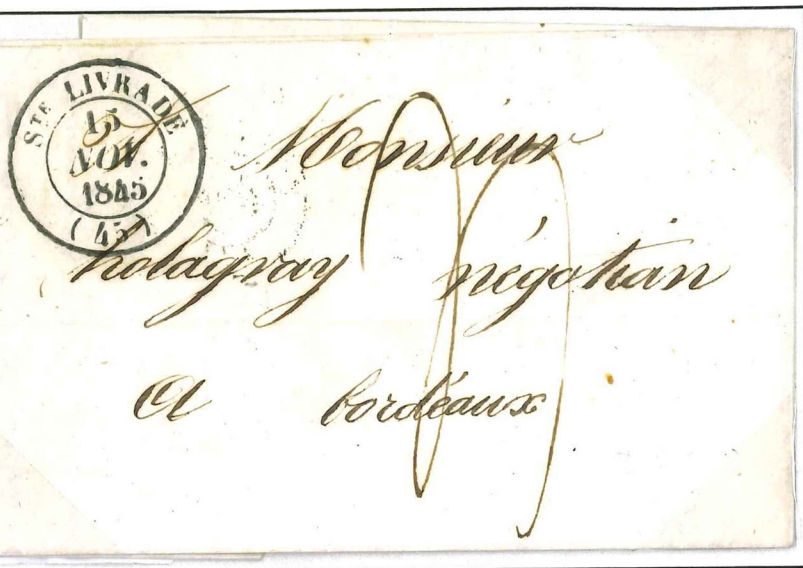 STE LIVRADE
15
NOV.
1845
(45)
Monsieur
holagray négotian
A bordeaux